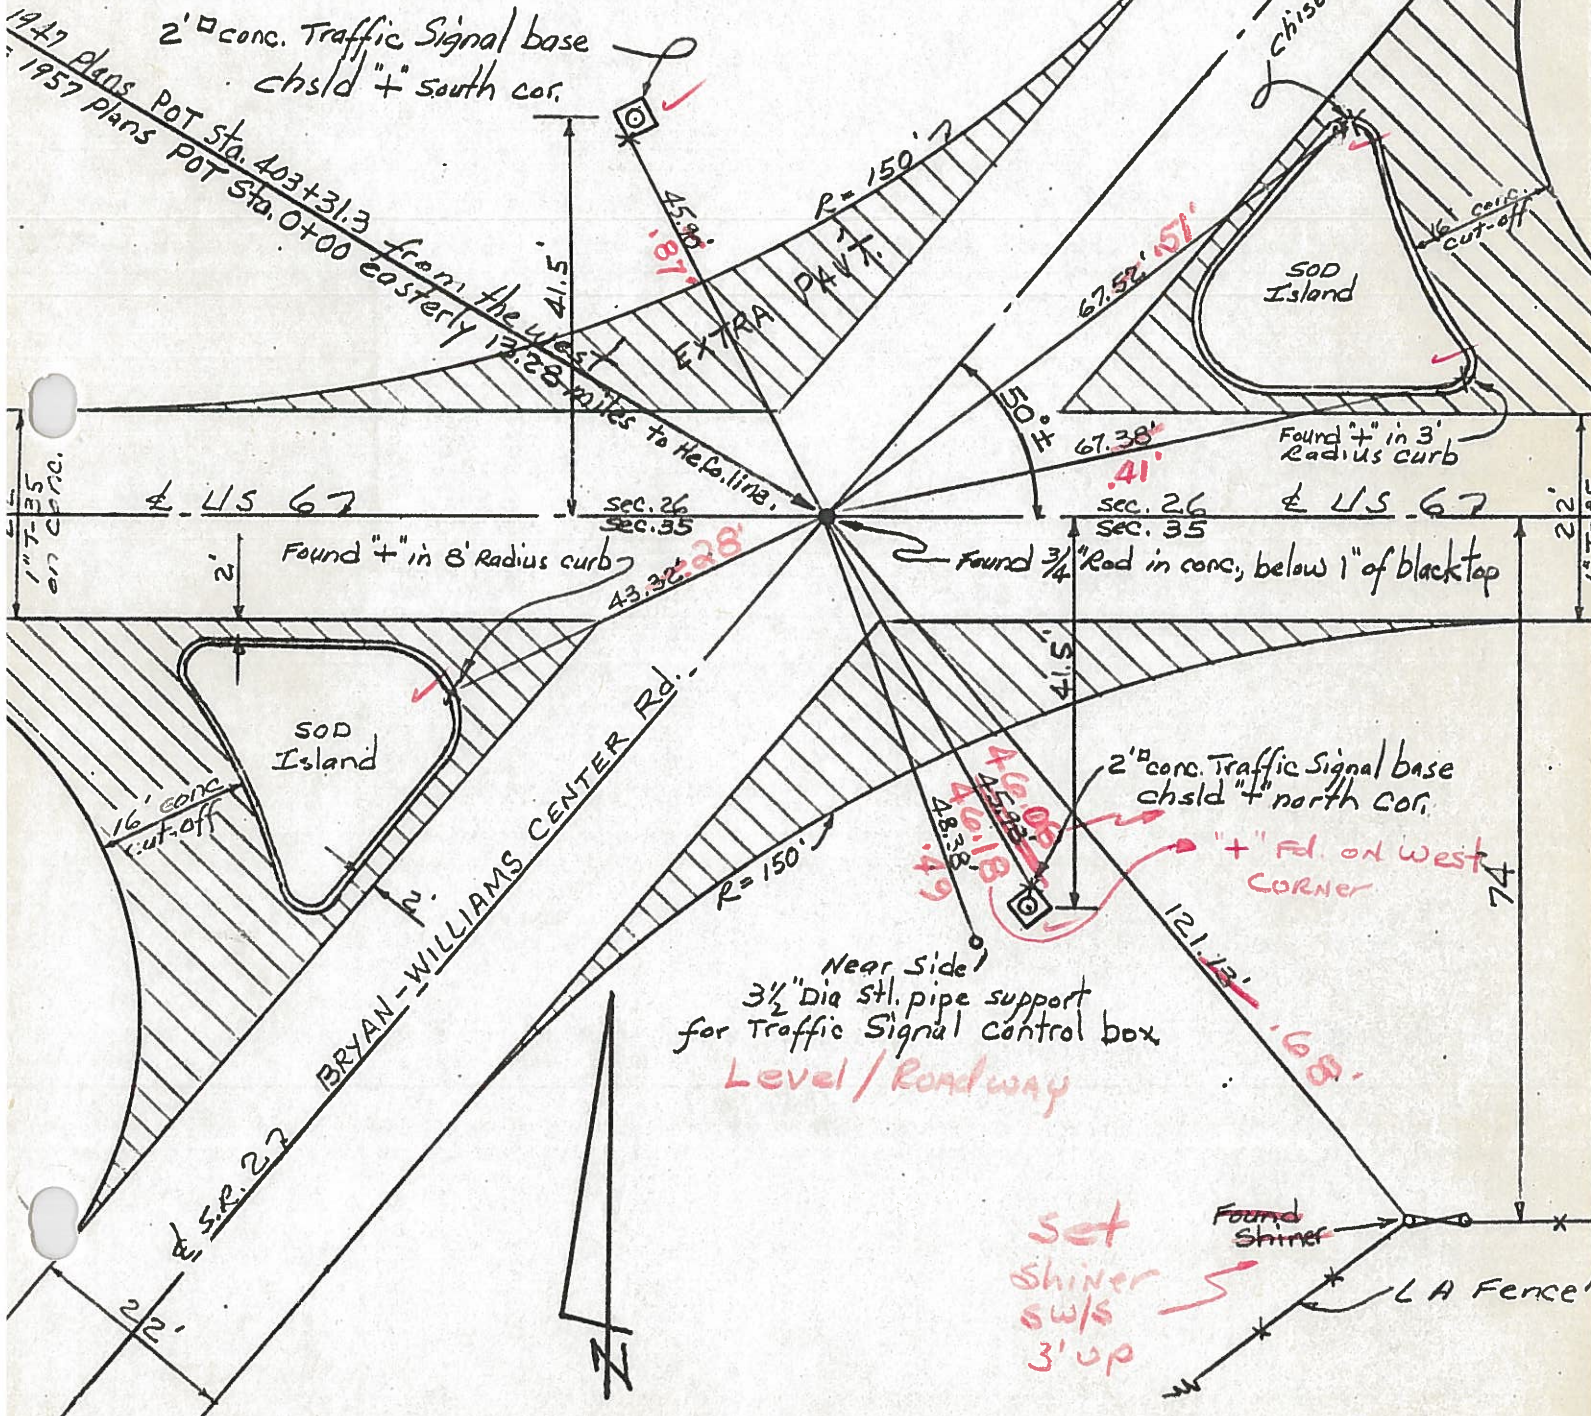 2'□ conc. Traffic Signal base
chsld "+" South cor.
1947 plans POT sta. 403+31.3 from the west
= 1957 plans POT Sta. 0+00 easterly 13.28 miles to Hefo. line.
45.90'
.87'
41.5'
R = 150'
EXTRA PAV'T.
67.52' .51'
SOD
Island
16' conc.
cut-off
50°±
67.38'
.41'
Found "+" in 3'
Radius curb
1" T-35
on conc.
℄ US 67
sec. 26
sec. 35
sec. 26
sec. 35
℄ US 67
22'
2'
Found "+" in 8' Radius curb
43.32' .28'
Found 3/4" Rod in conc., below 1" of blacktop
SOD
Island
16' conc
cut-off
2'
℄ S.R. 27
BRYAN-WILLIAMS CENTER Rd.
R = 150'
41.5'
46.06
45.93'
46.18
48.38'
.49
2'□ conc. Traffic Signal base
chsld "+" north cor.
"+" Fd. ON West
CORNER
74
121.13' .68'
Near Side
3½" Dia Stl. pipe support
for Traffic Signal Control box
Level / ROADWAY
Found
Shiner
Set
Shiner
SW/S
3' up
L A Fence
22'
N